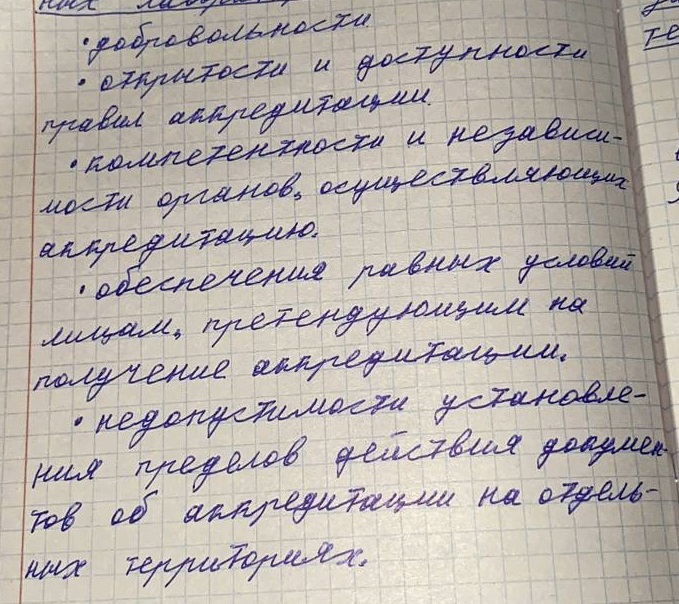 ных
• добровольности
• открытости и доступности
правил аккредитации.
• компетентности и независи-
мости органов, осуществляющих
аккредитацию.
• обеспечения равных условий
лицам, претендующим на
получение аккредитации.
• недопустимости установле-
ния пределов действия докумен-
тов об аккредитации на отдель-
ных территориях.